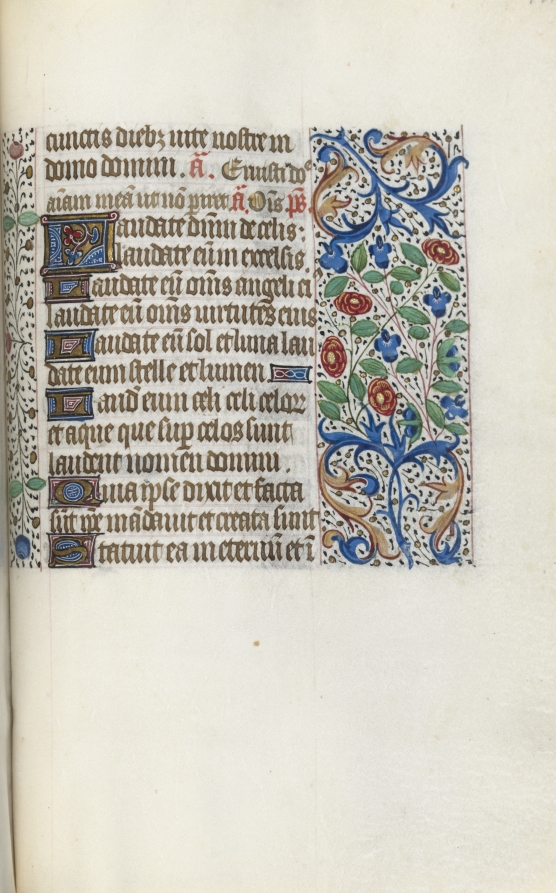 cunctis diebz uite nostre in
domo domini. ā. Eruisti dn̄e
aīam meā ut nō piret. ā. Oīs ps̄.
Laudate dn̄m de celis.
laudate eū in excelsis.
Laudate eū om̄s angeli ei
laudate eū om̄s uirtutes eius
Laudate eū sol et luna lau
date eum stelle et lumen
Laud' eum celi celi celorz
et aque que sup celos sunt
laudent nomen domini.
Quia ipse dixit et facta
sūt ip̄e mādauit et creata sunt
Statuit ea in eternū et ī